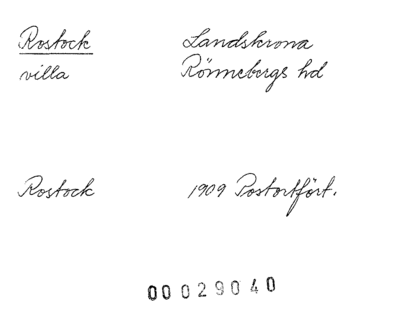 Rostock Landskrona
villa Rönnebergs hd
Rostock 1909 Postortfört.
00029040